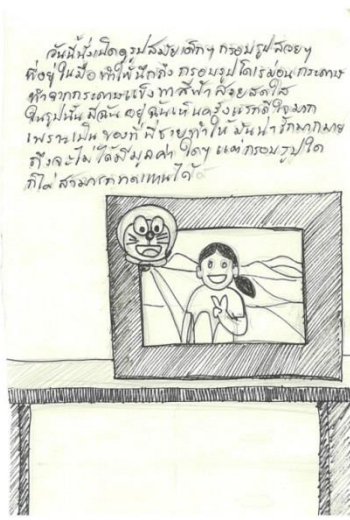 วันนี้นั่งเปิดดูรูปสมัยเด็กๆ กรอบรูปสวยๆ
ที่อยู่ในมือทำให้นึกถึง กรอบรูปโดเรม่อนกระดาษ
ทำจากกระดาษแข็งทาสีฟ้าสวยสดใส
ในรูปนั้นมีฉันอยู่ ฉันเห็นครั้งแรกดีใจมาก
เพราะเป็นของที่พี่ชายทำให้ มันน่ารักมากมาย
ถึงจะไม่ได้มีมูลค่าใดๆ แต่กรอบรูปใด
ก็ไม่สามารถทดแทนได้